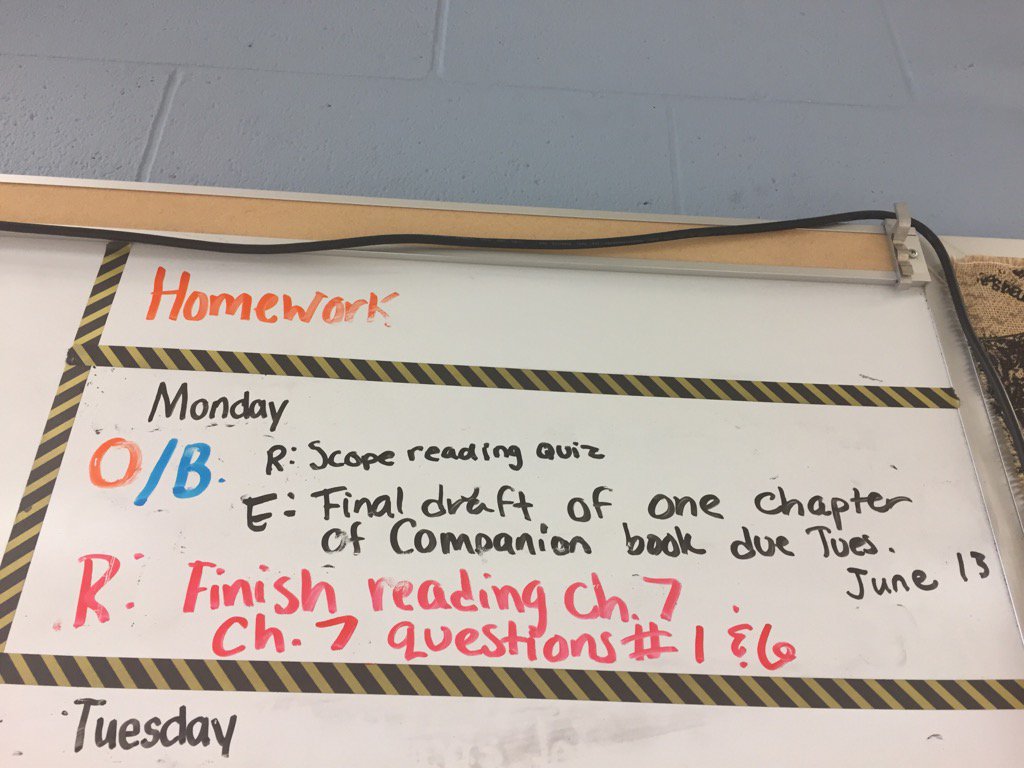 Homework
Monday
O/B. R: Scope reading quiz
E: Final draft of one chapter
of Companion book due Tues.
June 13
R: Finish reading Ch. 7
Ch. 7 questions #1 & 6
Tuesday